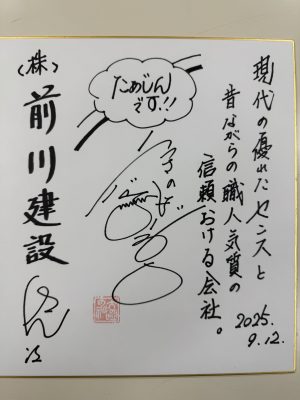 現代の優れたセンスと
昔ながらの職人気質の
信頼おける会社。
2025.
9.12.
ためじん
です.!!
(株)前川建設